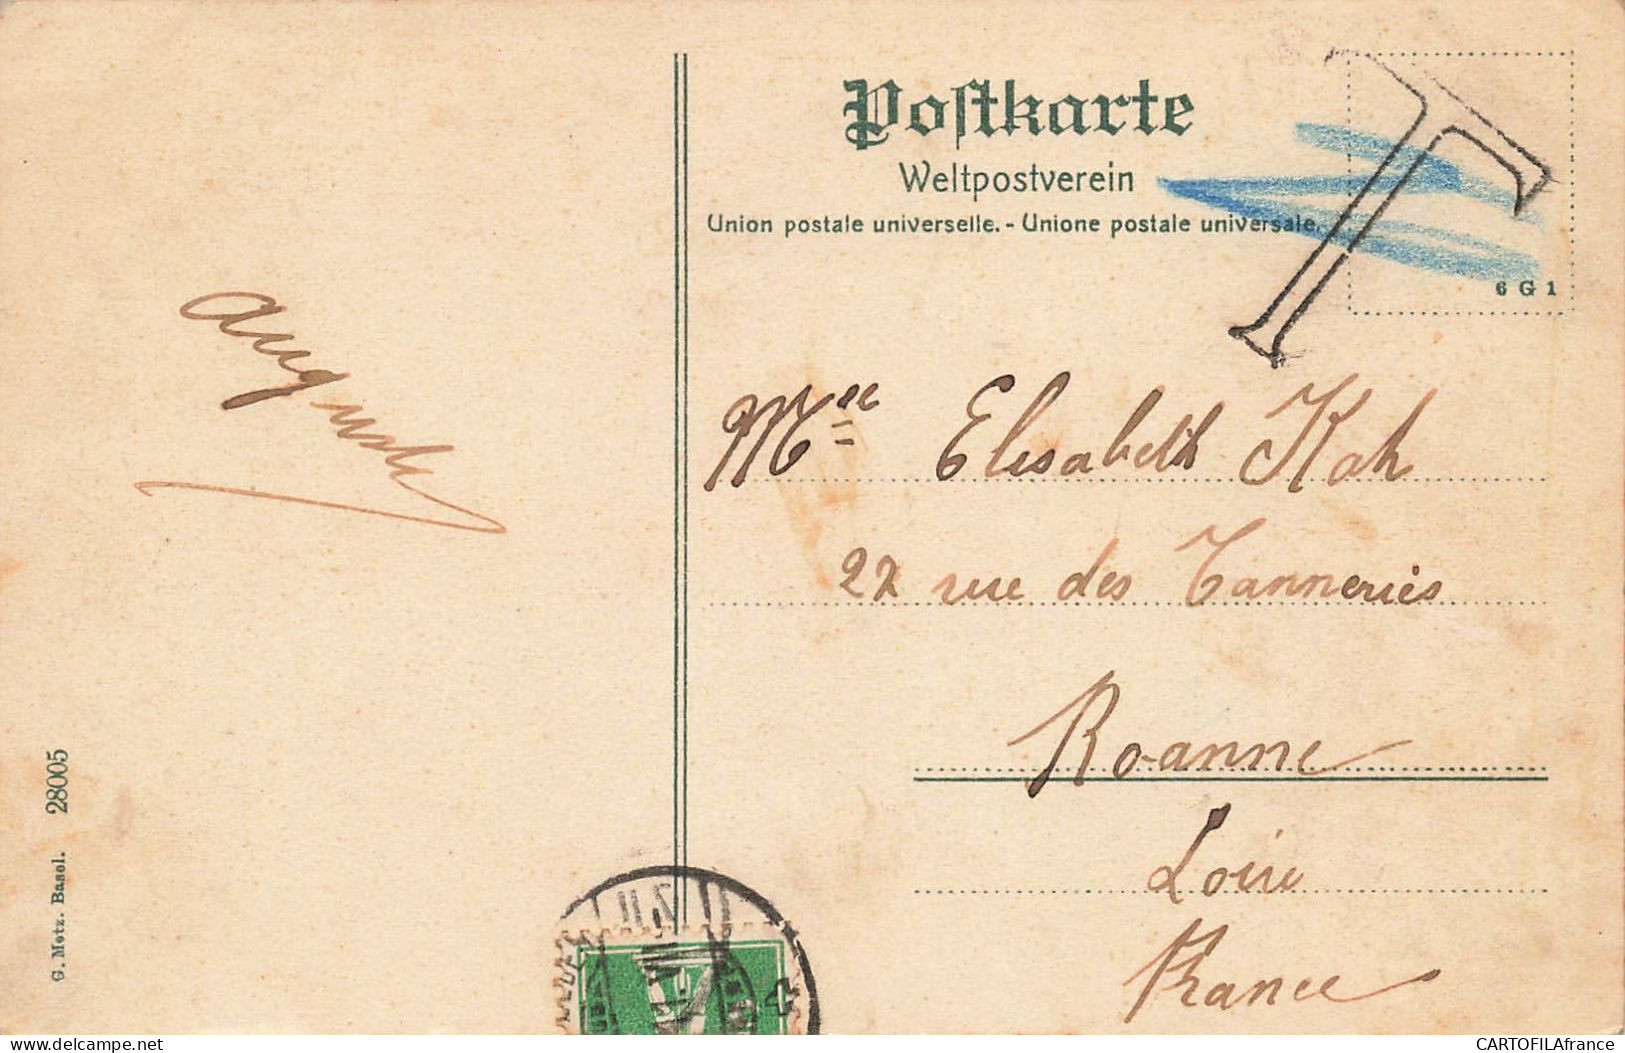 Postkarte
Weltpostverein
Union postale universelle. - Unione postale universale.
T
6 G 1
Mlle Elisabeth Kah
22 rue des Tanneries
Roanne
Loire
France
G. Metz. Basel. 28005
CARTOFILAfrance